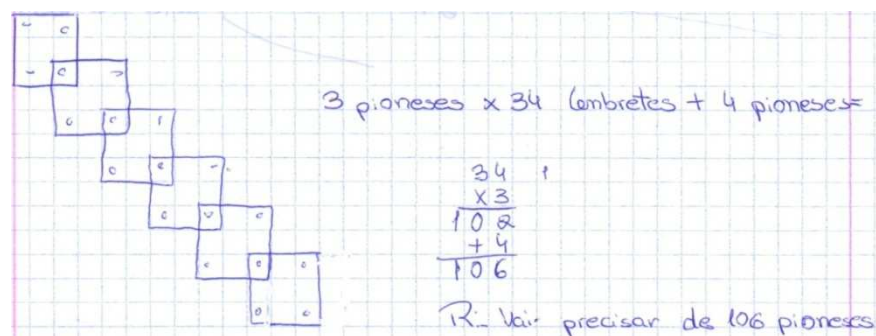 3 pioneses x 34 lembretes + 4 pioneses=
34
x3
102
+ 4
106
R:- Vai precisar de 106 pioneses